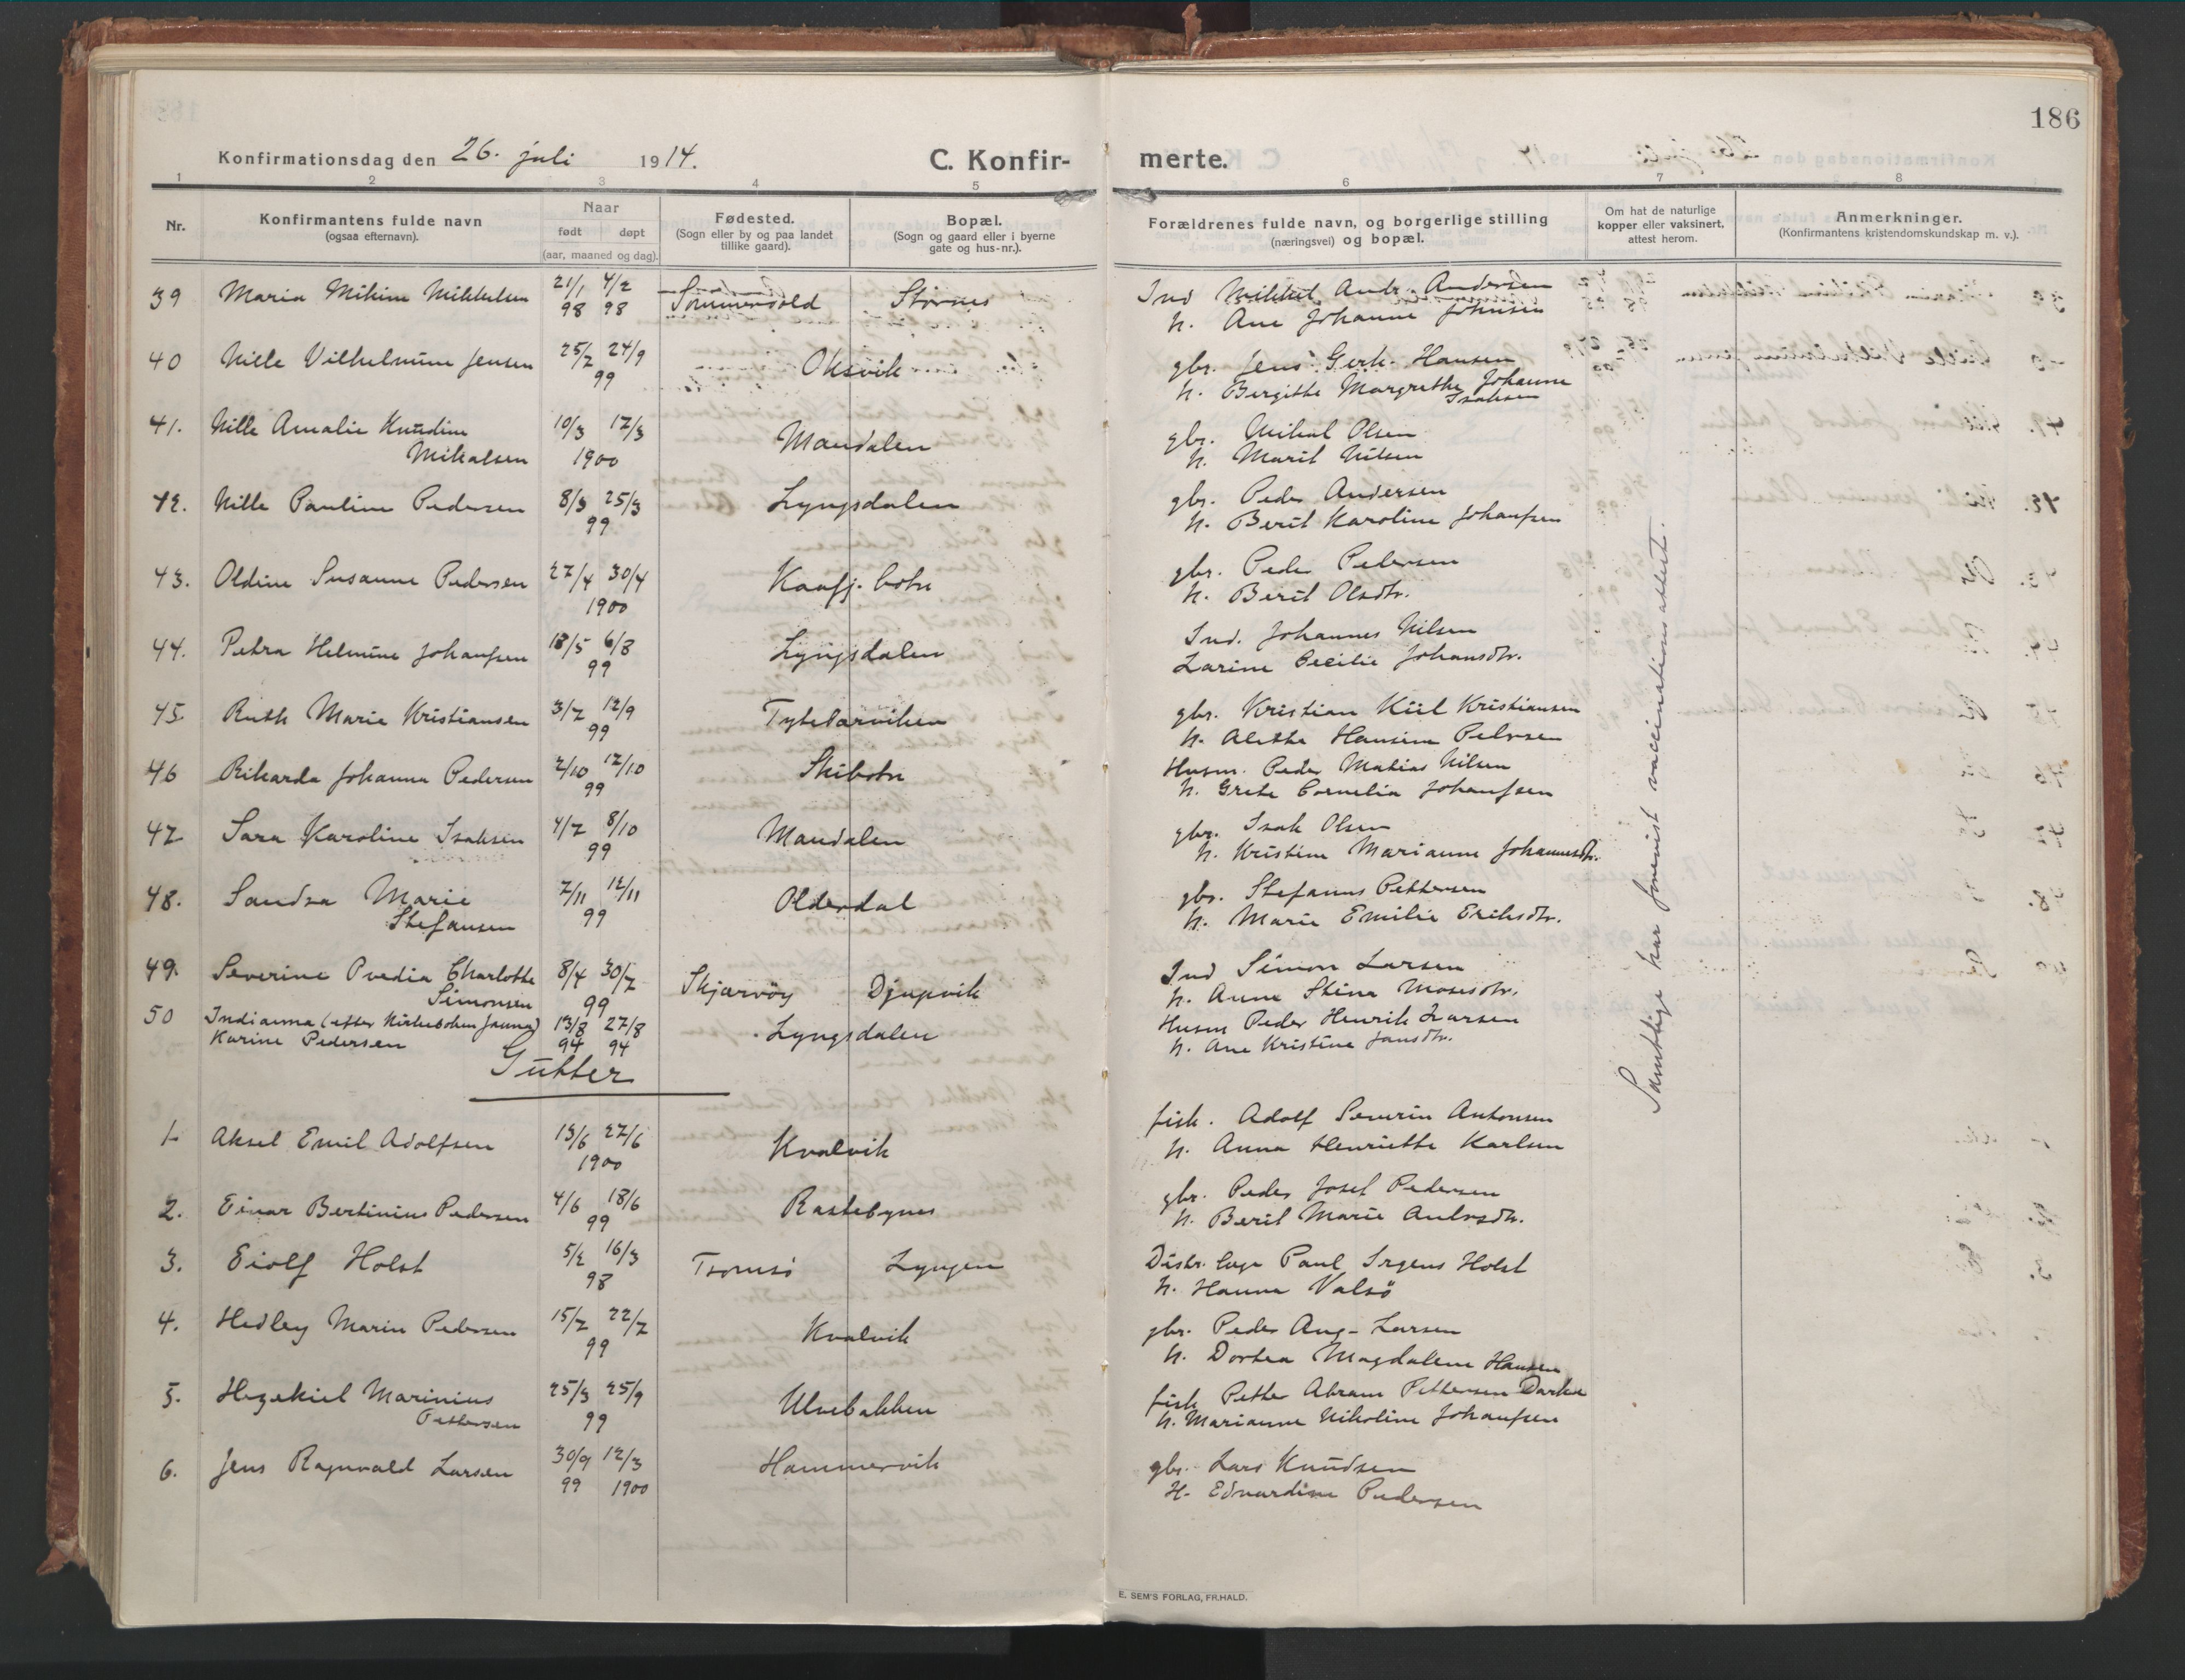 186
Konfirmationsdag den 26. juli 1914.
C. Konfir-
merte.
1 2 3 4 5 6 7 8
Nr.
Konfirmantens fulde navn
(ogsaa efternavn).
Naar
født døpt
(aar, maaned og dag).
Fødested.
(Sogn eller by og paa landet
tillike gaard).
Bopæl.
(Sogn og gaard eller i byerne
gate og hus-nr.).
Forældrenes fulde navn, og borgerlige stilling
(næringsvei) og bopæl.
Om hat de naturlige
kopper eller vaksinert,
attest herom.
Anmerkninger.
(Konfirmantens kristendomskundskap m. v.).
39 Maria Mikine Mikkelsen 21/1 4/2 Stornes Ind Mikkel Andr. Andersen
98 98 h. Ane Johanne Johnsen
40 Nille Vilhelmine Jensen 25/7 24/9 Oksvik gbr. Jens Gerh. Hansen
99 h. Bergithe Margrethe Johanne
Isaksen
41. Nille Amalie Knudine 10/3 17/3 Mandalen gbr. Mikal Olsen
Mikalsen 1900 h. Marit Nilsen
42. Nille Pauline Pedersen 8/3 25/3 Lyngsdalen gbr. Peder Andersen
99 h. Berit Karoline Johansen
43. Oldine Susanne Pedersen 27/4 30/4 Kaafj. botn gbr. Peder Pedersen
1900 h. Berit Olsdtr.
44. Petra Helmine Johansen 18/5 6/8 Lyngsdalen Ind. Johannes Nilsen
99 Larine Cecilie Johansdtr.
45. Ruth Marie Kristiansen 3/7 12/9 Tytebærviken gbr. Kristian Kiil Kristiansen
99 h. Alethe Hansine Pedersen
46 Rikarda Johanna Pedersen 2/10 12/10 Skibotn Husm. Peder Mathias Nilsen
99 h. Grete Cornelia Johansen
47 Sara Karoline Isaksen 4/7 8/10 Mandalen gbr. Isak Olsen
99 h. Kristine Marianne Johannesdtr.
48. Sandra Marie 7/11 12/11 Olderdal gbr. Stefanus Pettersen
Stefansen 99 h. Marie Emilie Eriksdtr.
49. Severine Ovedia Charlotte 8/4 30/7 Skjærvøy Djupvik Ind Simon Larsen
Simonsen 99 h. Anne Stina Mosesdtr.
50 Indianna (efter Kirkeboken Janna) 13/8 27/8 Lyngsdalen Husm Peder Henrik Larsen
Karine Pedersen 94 94 h. Ane Kristine Jansdtr.
Gutter
1. Aksel Emil Adolfsen 13/6 27/6 Kvalvik fisk. Adolf Severin Antonsen
1900 h. Anna Henriette Karlsen
2. Einar Bertinius Pedersen 4/6 18/6 Rastebynes gbr. Peder Josef Pedersen
99 h. Berit Marie
3. Eiolf Holst 5/2 16/3 Tromsö Lyngen Distr. læge Paul Irgens Holst
98 h. Hanna Valsö
4. Hedley Marin Pedersen 15/7 22/7 Kvalvik gbr. Peder Aug. Larsen
99 h. Dortea Magdalene Hansen
5. Hezekiel Marinius 25/3 25/9 Ulvebakken fisk Petter Abram Pettersen
Pettersen 99 h. Marianne Nikoline Johansen
6. Jens Ragnvald Larsen 30/9 12/3 Hammervik gbr. Lars Knudsen
99 1900 H. Edvardine Pedersen
Samtlige har forevist vaccinationsattest.
E. SEM'S FORLAG, FR.HALD.